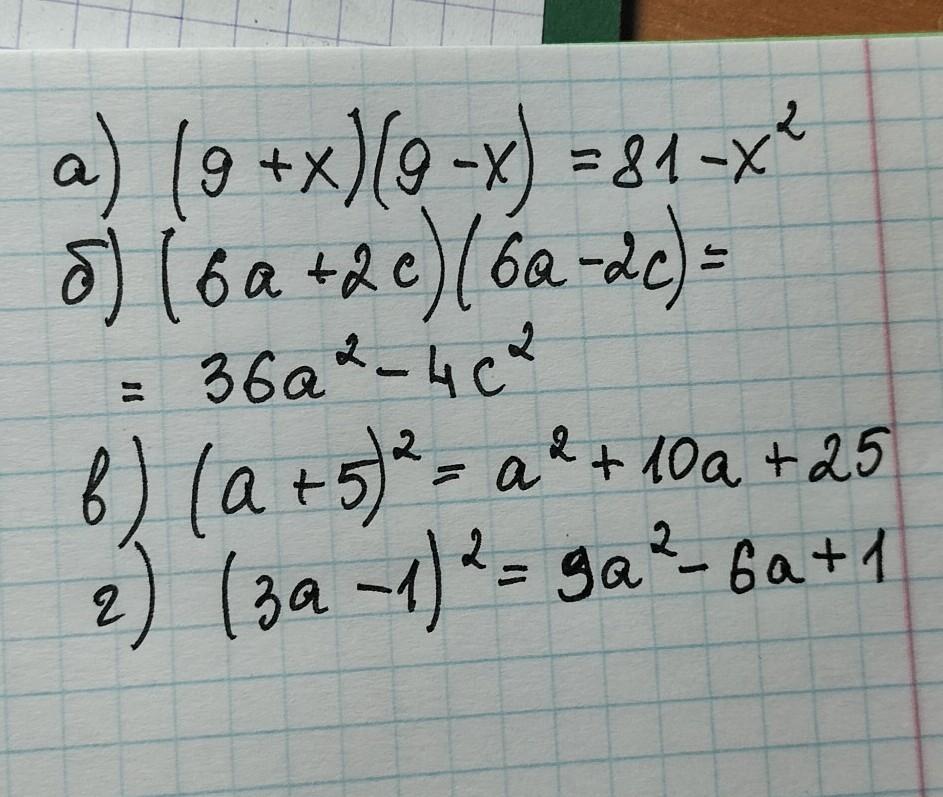 а) (9 + x)(9 - x) = 81 - x²
б) (6a + 2c)(6a - 2c) =
= 36a² - 4c²
в) (a + 5)² = a² + 10a + 25
г) (3a - 1)² = 9a² - 6a + 1